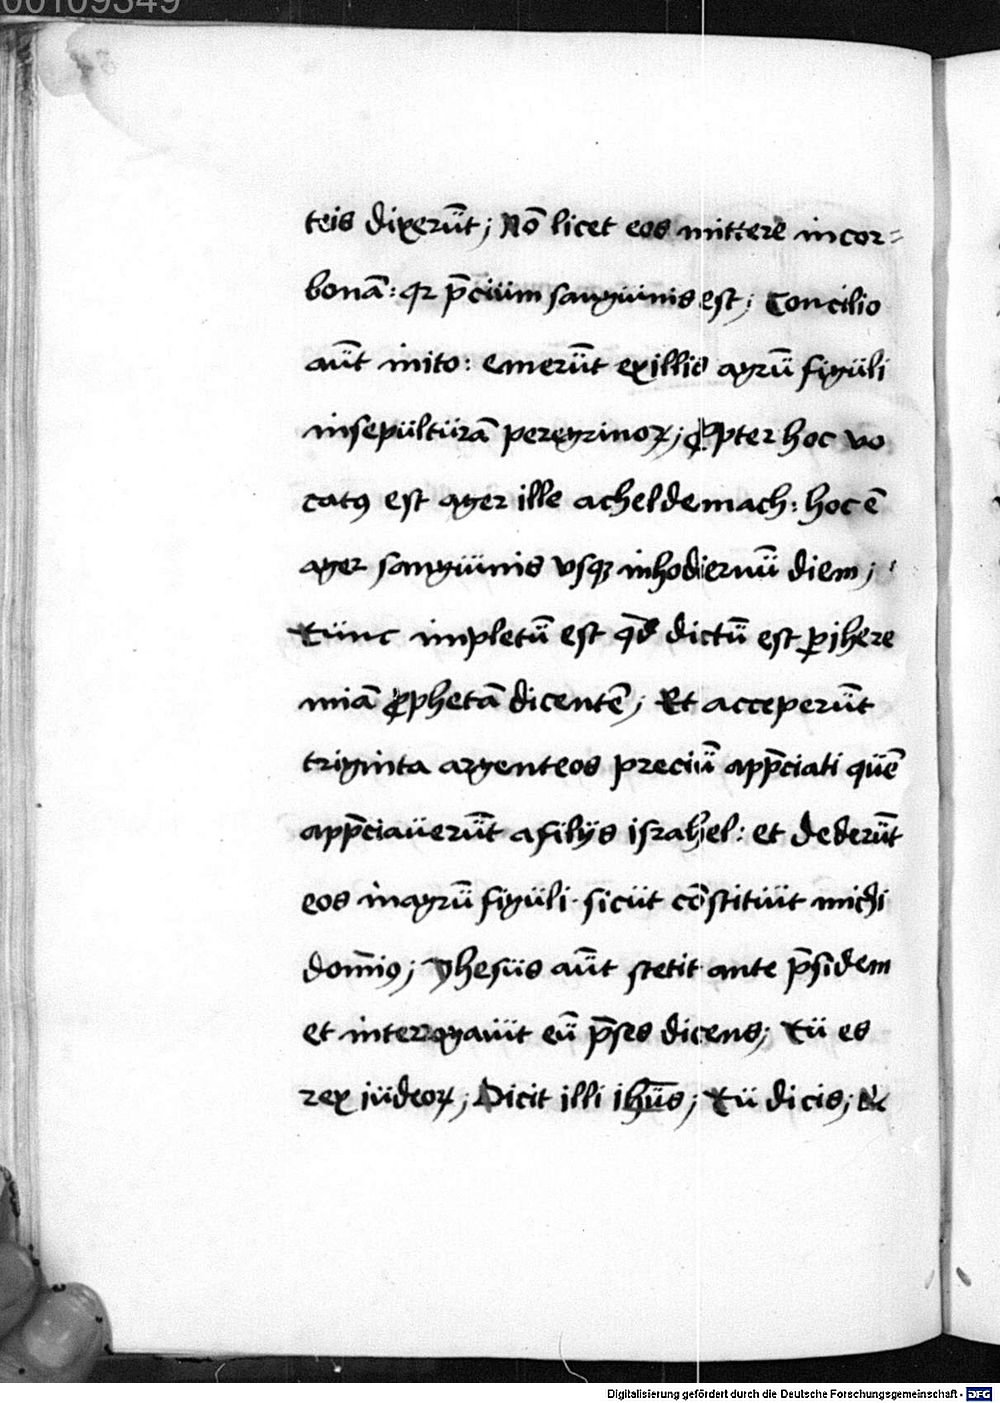 00109349
teis dixerūt; Nō licet eos mittere incor=
bonā: qꝛ p̄cium sanguinis est; Concilio
aūt inito: emerūt exillis agrū figuli
insepulturā peregrinoꝝ; ꝓpter hoc vo
catꝰ est ager ille acheldemach: hoc ē
ager sanguinis vsqꝫ inhodiernū diem;
Tunc impletū est qd̄ dictū est ꝑ jhere
miā ꝓphetā dicentē; Et acceperūt
triginta argenteos preciū app̄ciati quē
app̄ciauerūt afilijs israhel: et dederūt
eos inagrū figuli· sicut cōstituit michi
dom̄iꝰ; yhesus aūt stetit ante p̄sidem
et interrogauit eū p̄ses dicens; Tu es
rex iudeoꝝ; Dicit illi ihūs; Tu dicis; Et
Digitalisierung gefördert durch die Deutsche Forschungsgemeinschaft - DFG